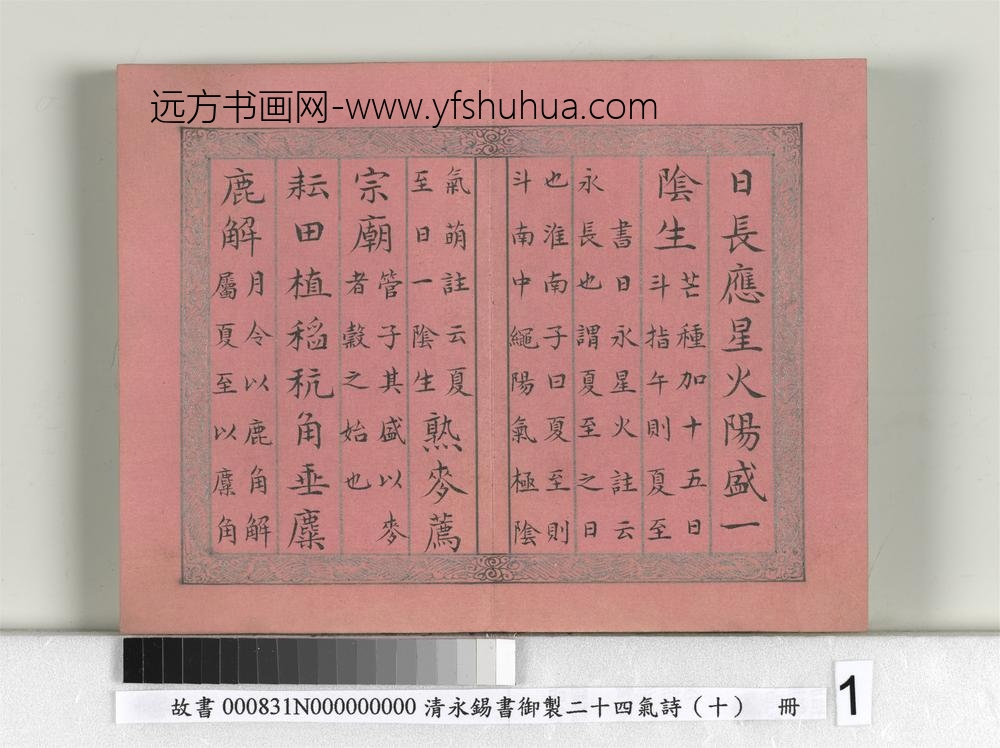 远方书画网-www.yfshuhua.com
日長應星火陽盛一
陰生
芒種加十五日
斗指午則夏至
書日永星火註云
永長也謂夏至之日
也淮南子曰夏至則
斗南中繩陽氣極陰
氣萌註云夏
至日一陰生
熟麥薦
宗廟
管子其盛以麥
者穀之始也
耘田植稻秔角垂麋
鹿解
月令以鹿角解
屬夏至以麋角
故書 000831N000000000 清永錫書御製二十四氣詩（十） 冊
1